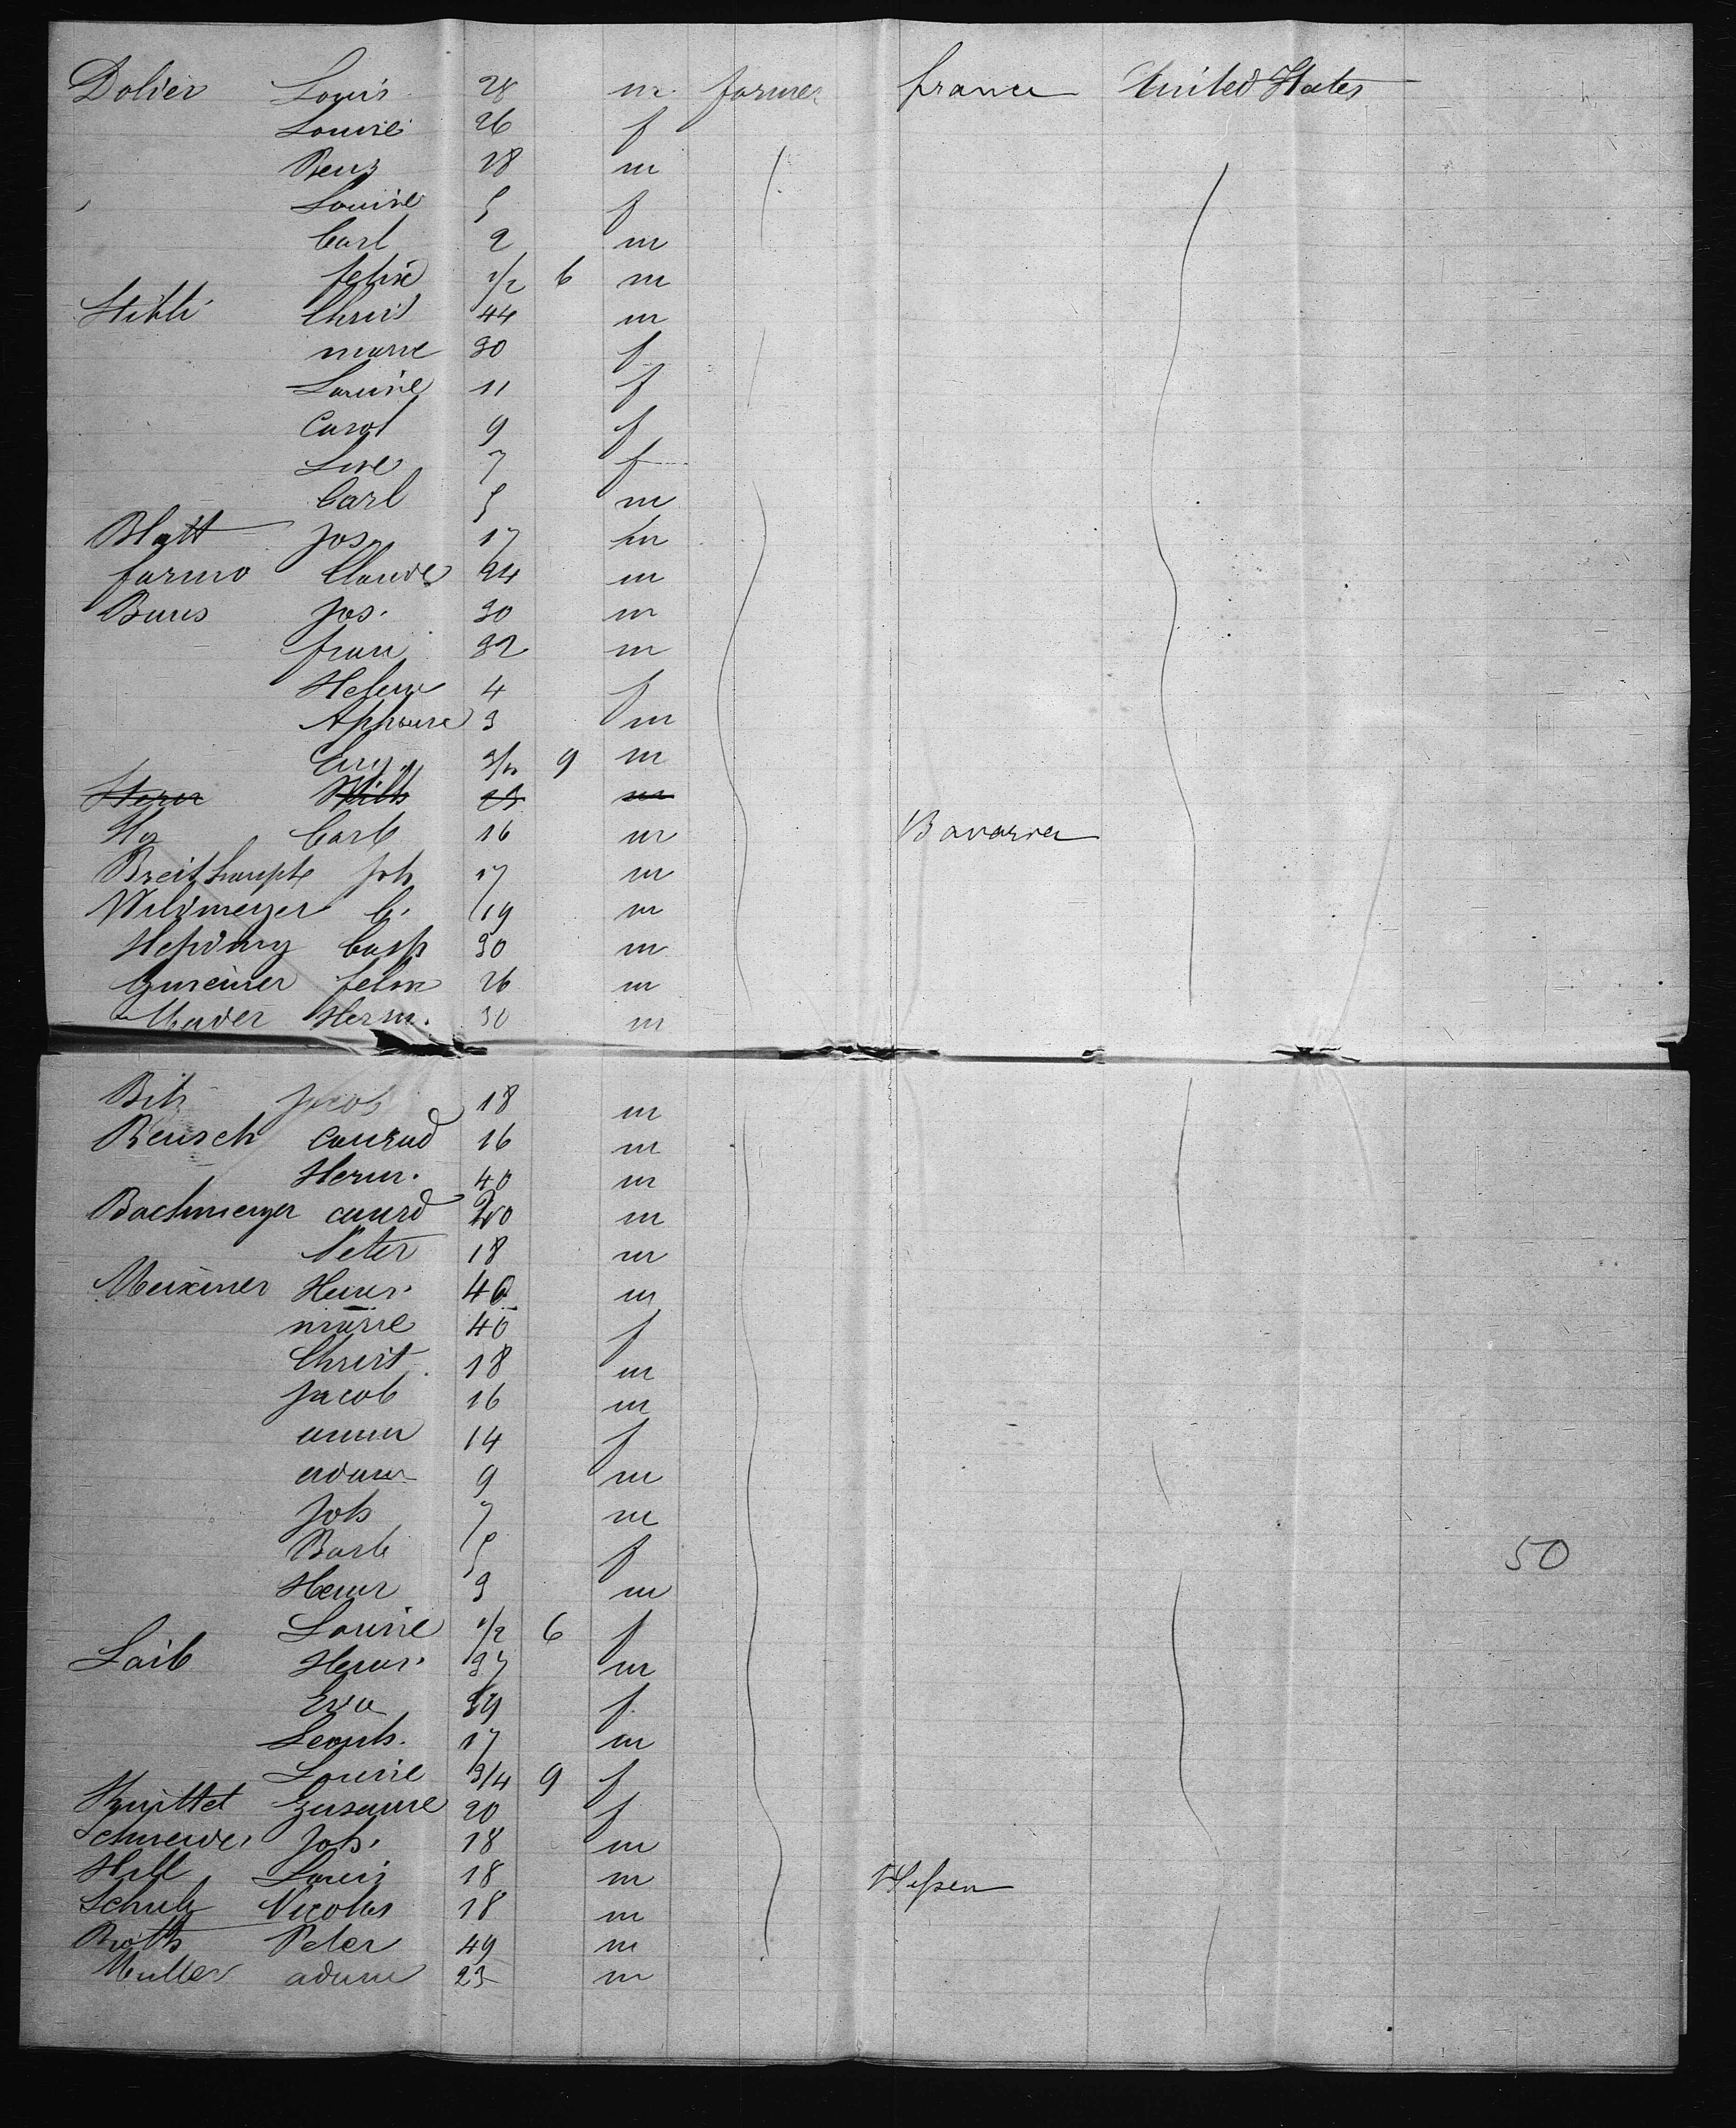 Dolier Louis 28 m. farmer france United States
Louise 26 f
Benj 18 m
Louise 5 f
Carl 2 m
felix 1/2 6 m
Stibli Christ 44 m
marie 30 f
Louise 11 f
Carol 9 f
Lise 7 f
Carl 5 m
Blatt Jos. 17 m
Claude 24 m
Jos. 30 m
32 m
Helene 4 f
Alphonse 3 m
Eug. 3/4 9 m
23 m
Carl 16 m Bavaria
Breithaupt Joh 17 m
Wildmeyer C. 19 m
Casp 30 m
Gmeiner felix 26 m
Mader Herm. 30 m
Jacob 18 m
Reusch Conrad 16 m
Herm. 40 m
Bachmeyer Conrd 20 m
Peter 18 m
Meixner Henr. 46 m
marie 40 f
Christ. 18 m
Jacob 16 m
anna 14 f
adam 9 m
Joh 7 m
Barb 5 f 50
Henr 3 m
Louise 1/2 6 f
Laib Henr. 37 m
Eva 39 f
Leonh. 17 m
Louise 3/4 9 f
Susanne 20 f
Schneider Joh. 18 m
Hill Louis 18 m Hessen
Schulz Nicolas 18 m
Roth Peter 49 m
Muller adam 23 m